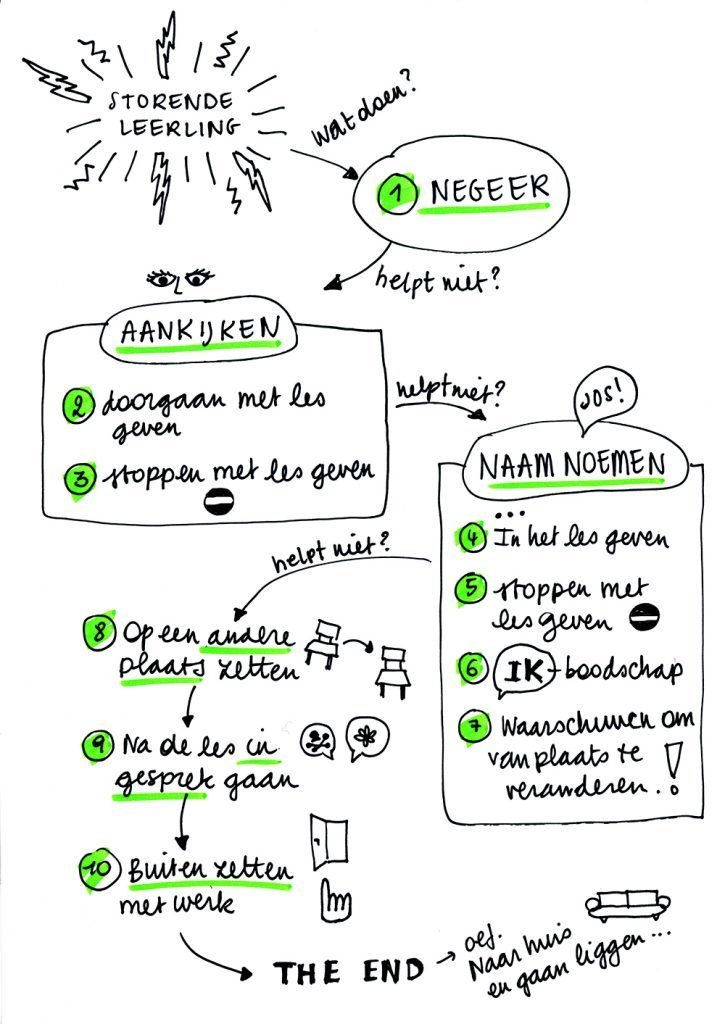 STORENDE
LEERLING
wat doen?
1 NEGEER
helpt niet?
AANKIJKEN
2 doorgaan met les
geven
3 stoppen met les geven
helpt niet?
JOS!
NAAM NOEMEN
...
4 In het les geven
5 stoppen met
les geven
6 IK-boodschap
7 Waarschuwen om
van plaats te
veranderen.!
helpt niet?
8 Op een andere
plaats zetten
9 Na de les in
gesprek gaan
10 Buiten zetten
met werk
THE END
oef.
Naar huis
en gaan liggen...